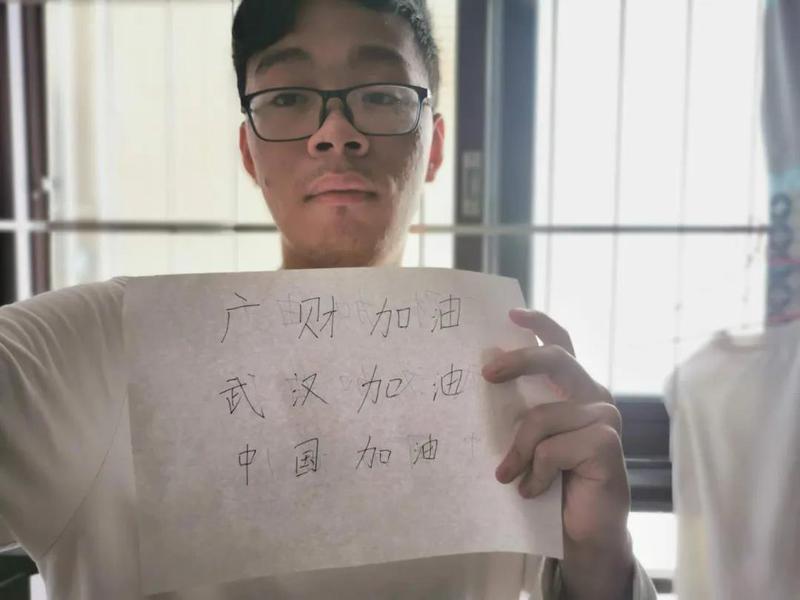 广财加油
武汉加油
中国加油